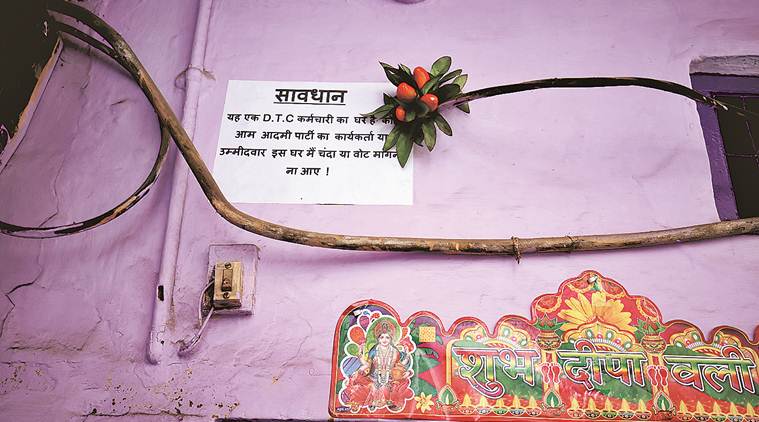 सावधान
यह एक D.T.C कर्मचारी का घर है
आम आदमी पार्टी का कार्यकर्ता या
उम्मीदवार इस घर में चंदा या वोट मांगने
ना आए !
शुभ दीपावली